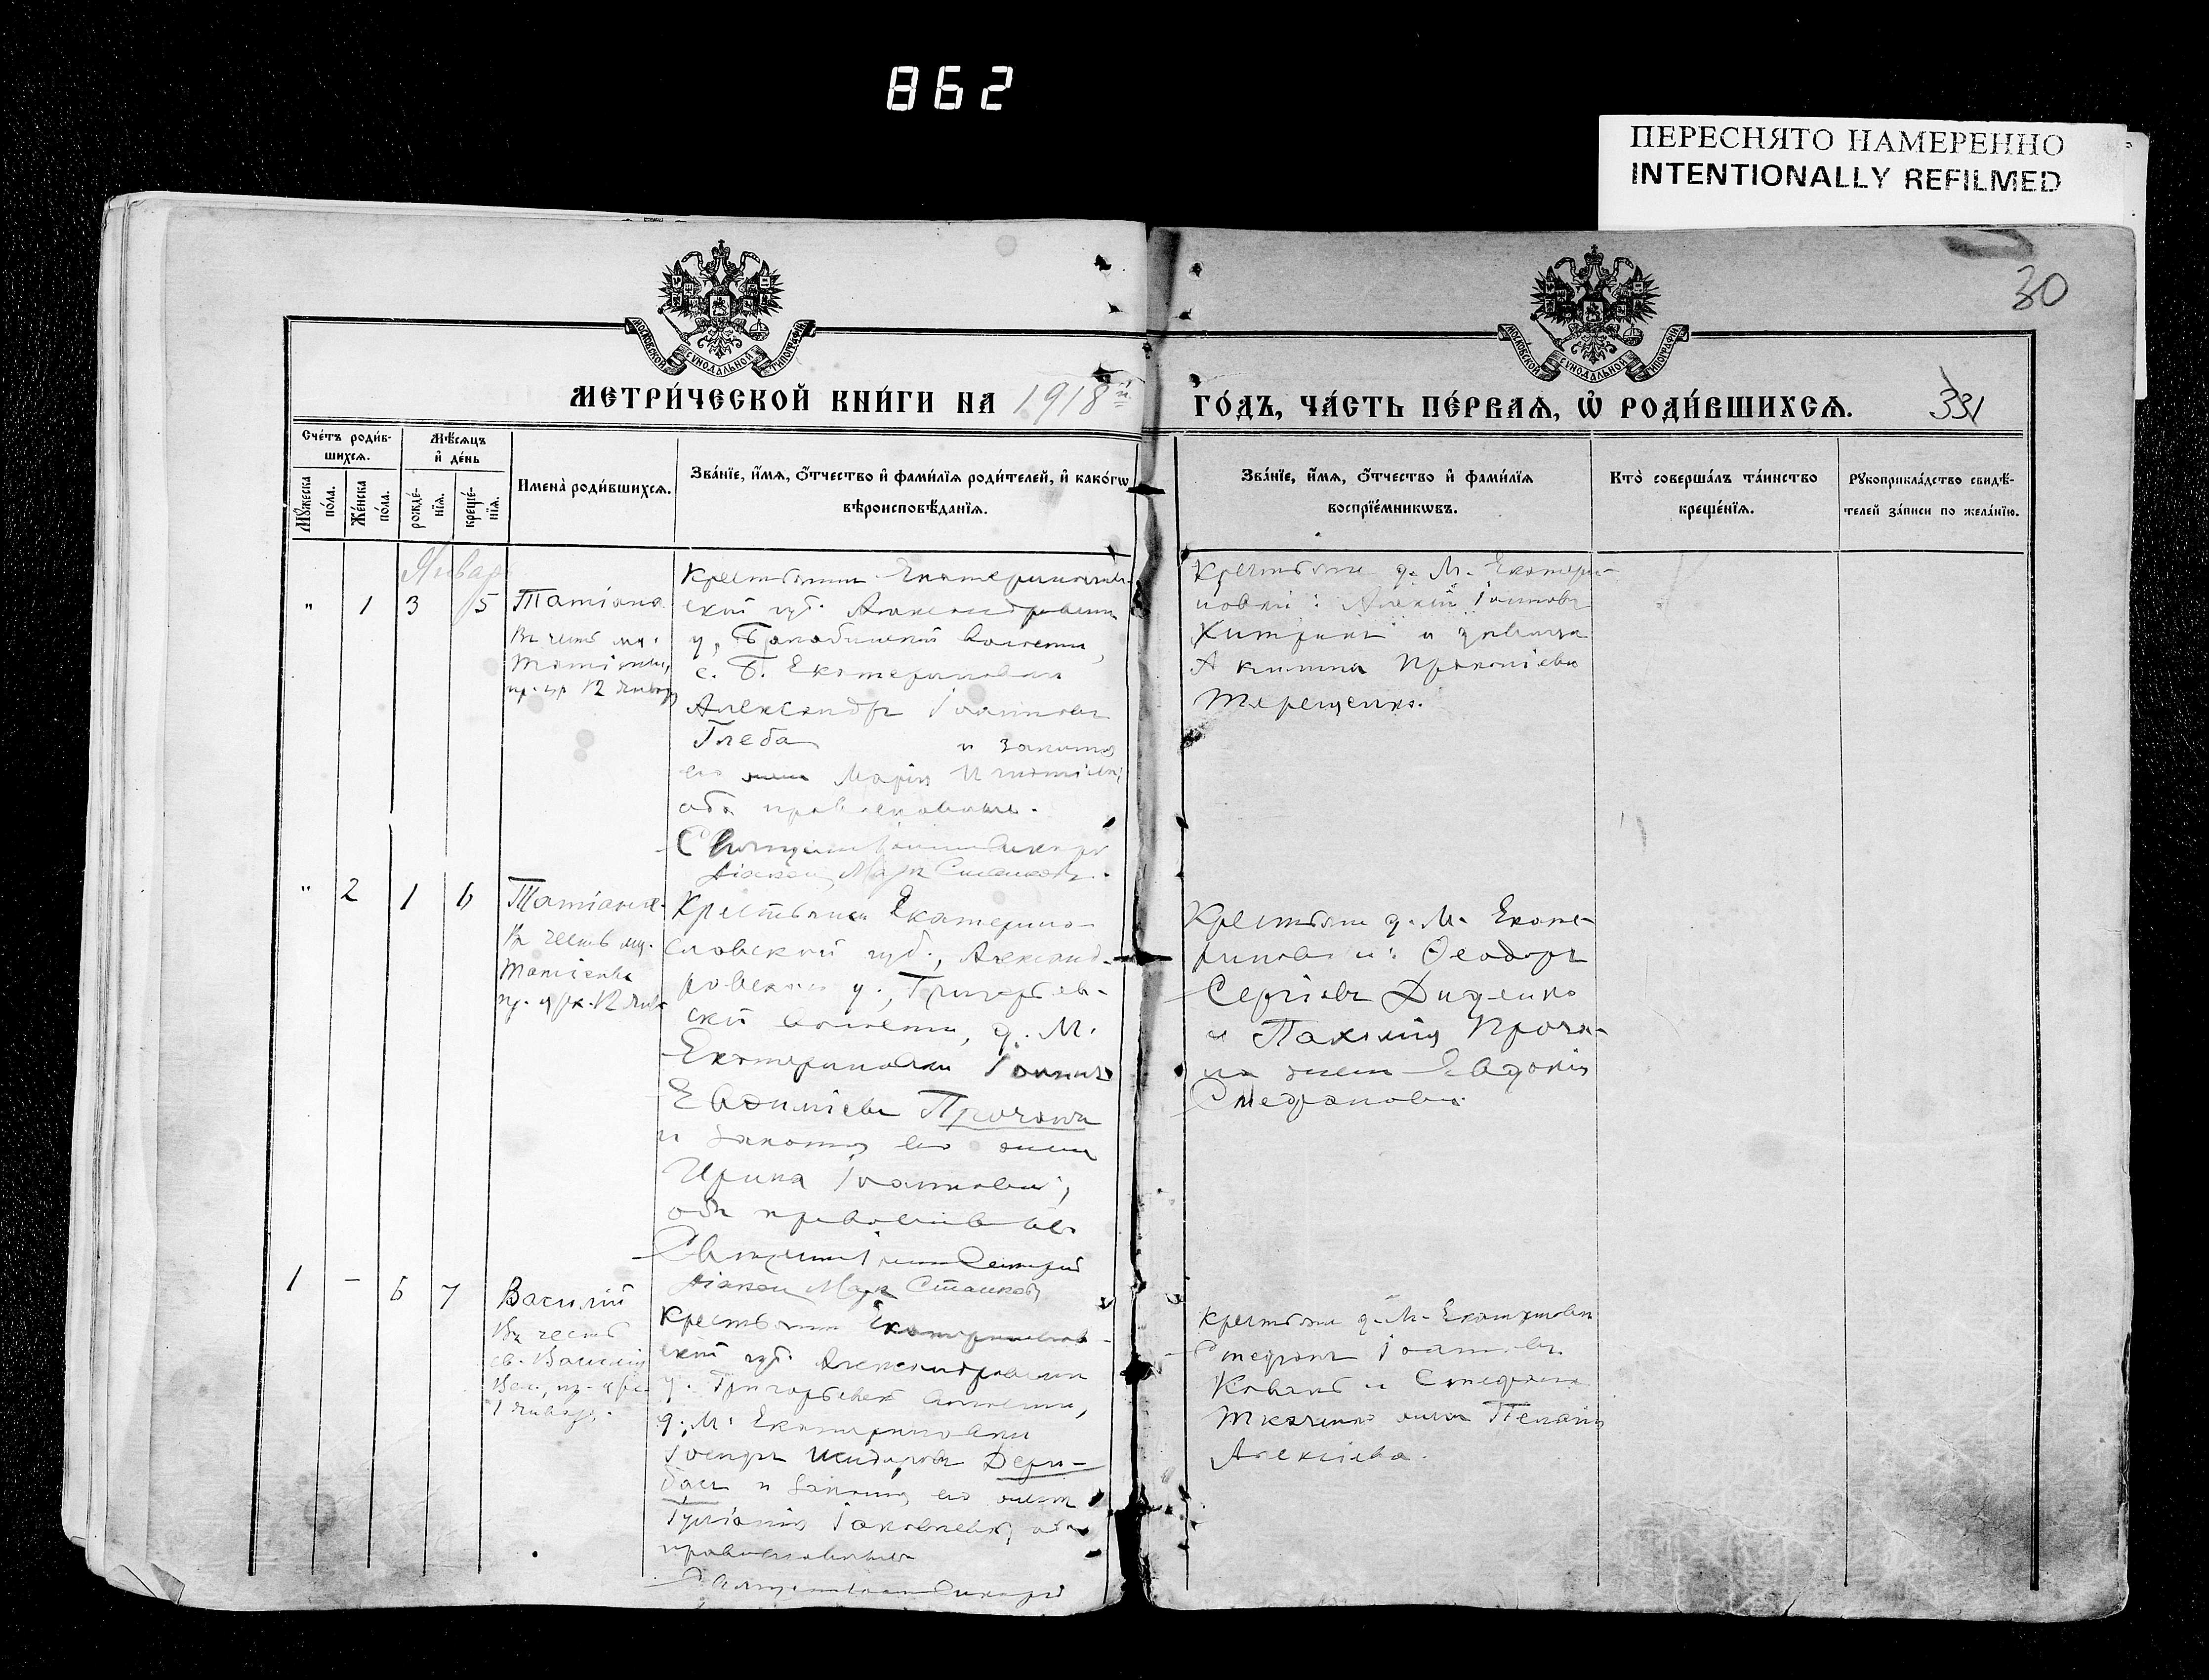 862
ПЕРЕСНЯТО НАМЕРЕННО
INTENTIONALLY REFILMED
30
МОСКОВСКОЙ СУНОДАЛЬНОЙ ТИПОГРАФІИ
МОСКОВСКОЙ СУНОДАЛЬНОЙ ТИПОГРАФІИ
МЕТРИ́ЧЕСКОЙ КНИ́ГИ НА 1918 й
ГО́ДЪ, ЧА́СТЬ ПЕ́РВАѦ, Ѡ҆ РОДИ́ВШИХСѦ.
Сче́тъ роди́в-
шихсѧ.
Мѣ́сѧцъ
и҆ де́нь
Мꙋ́жеска
по́ла.
Же́нска
по́ла.
рожде́-
нїѧ.
креще́-
нїѧ.
Имена̀ роди́вшихсѧ.
Зва́нїе, и҆́мѧ, ѻ҆́тчество и҆ фами́лїѧ роди́телей, и҆ како́гѡ
вѣроисповѣ́данїѧ.
Зва́нїе, и҆́мѧ, ѻ҆́тчество и҆ фами́лїѧ
воспрїе́мникѡвъ.
Кто̀ соверша́лъ та́инство
креще́нїѧ.
Рꙋкоприкла́дство свидѣ́-
телей за́писи по жела́нїю.
Январ
" 1 3 5 Татіана
Въ честь му.
Татіаны,
пр. цр 12 Январ
Крестьянин Екатеринослав-
ской губ. Александровскаго
у, волости,
с. Б. Екатериновки
Александръ Іоанновъ
Глеба и законная
его жена Марія Игнатіева,
оба православные.
Діаконъ Маркъ Сташковъ.
Крестьяне д. М. Екатери-
новки: Іоанновъ
и девица
Акилина Прокопіева
Терещенко.
" 2 1 6 Татіана
Въ честь му.
Татіаны
пр. црк. 12 Янв
Крестьянин Екатерино-
славской губ., Александ-
ровскаго у., Григорьев-
ской волости, д. М.
Екатериновки Іоаннъ
Евфиміевъ Прочанъ
и законная его жена
Ирина Іоаннова,
оба православные
Діаконъ Маркъ Сташковъ
Крестьяне д. М. Екате-
риновки: Ѳеодоръ
Сергіевъ Диденко
и Пахомія Проча-
на жена Евдокія
Стефанова.
1 - 6 7 Василій
Въ честь
св. Василія
Вел., пр. црк.
1 Января.
Крестьянин Екатеринослав-
ской губ. Александровскаго
у. Григорьевской волости,
д. М. Екатериновки
Іосифъ Исидоровъ Дери-
басъ и законная его жена
Іуліанія Іаковлева, оба
православные
Крестьяне д. М. Екатериновки
Стефанъ Іоанновъ
Коваль и Стефана
Ткаченко жена Пелагія
Алексіева.